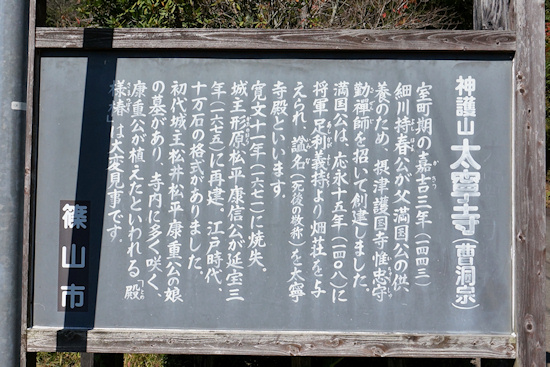 神護山 太寧寺(曹洞宗)
室町期の嘉吉三年(一四四三)
細川持春公が父満国公の供
養のため、摂津護国寺惟忠守
勤禅師を招いて創建しました。
満国公は、応永十五年(一四〇八)に
将軍足利義持より畑荘を与
えられ、諡名(死後の敬称)を太寧
寺殿といいます。
寛文十二年(一六七二)に焼失、
城主形原松平康信公が延宝三
年(一六七五)に再建。江戸時代、
十万石の格式がありました。
初代城主松井松平康重公の娘
の墓があり、寺内に多く咲く、
康重公が植えたといわれる「殿
様椿」は大変見事です。
篠山市